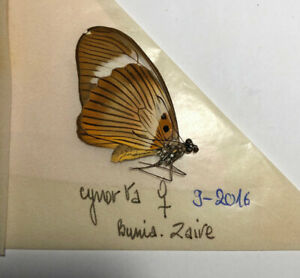 cynorta ♀ 9-2016
Bunia. Zaire